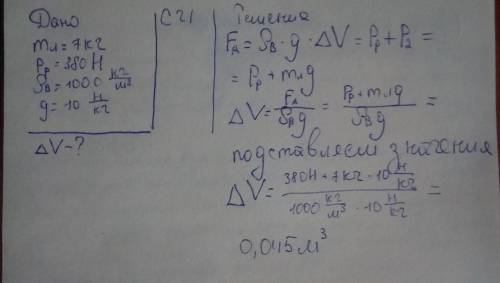 Дано
mл = 7кг
Pр = 380Н
ρв = 1000 кг/м³
g = 10 Н/кг
ΔV - ?
СИ
Решение
Fд = ρв · g · ΔV = Pр + Pл =
= Pр + mлg
ΔV = Fд/ρвg = Pр + mлg/ρвg =
подставляем значения
ΔV = 380Н + 7кг · 10 Н/кг / 1000 кг/м³ · 10 Н/кг =
0,045м³